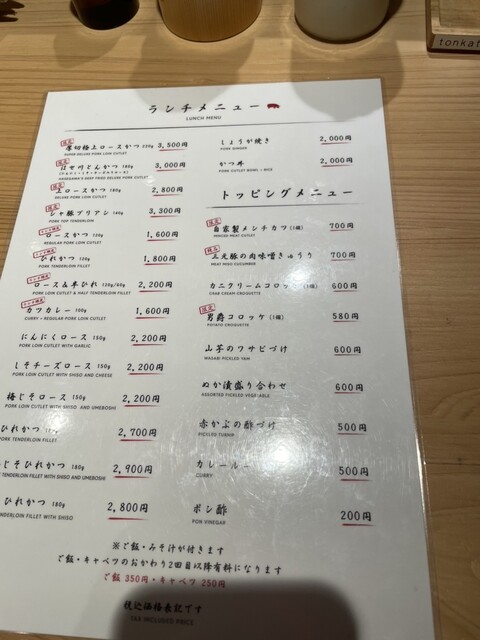 tonkat
ランチメニュー
LUNCH MENU
厚切極上ロースかつ 250g 3,500円
SUPER DELUXE PORK LOIN CUTLET
はせ川とんかつ 180g 3,000円
HASEGAWA'S DEEP FRIED DELUXE PORK CUTLET
上ロースかつ 180g 2,800円
DELUXE PORK LOIN CUTLET
シャ豚ブリアン 140g 3,300円
PORK TOP TENDERLOIN
ロースかつ 130g 1,600円
REGULAR PORK LOIN CUTLET
ひれかつ 120g 1,800円
PORK TENDERLOIN FILLET
ロース&半ひれ 120g/60g 2,200円
PORK LOIN CUTLET & HALF TENDERLOIN FILLET
カツカレー 100g 1,600円
CURRY + REGULAR PORK LOIN CUTLET
にんにくロース 150g 2,200円
PORK LOIN CUTLET WITH GARLIC
しそチーズロース 150g 2,200円
PORK LOIN CUTLET WITH SHISO AND CHEESE
梅じそロース 150g 2,200円
PORK LOIN CUTLET WITH SHISO AND UMEBOSHI
ひれかつ 180g 2,700円
PORK TENDERLOIN FILLET
じそひれかつ 180g 2,900円
TENDERLOIN FILLET WITH SHISO AND UMEBOSHI
ひれかつ 180g 2,800円
TENDERLOIN FILLET WITH SHISO
しょうが焼き 2,000円
PORK GINGER
かつ丼 2,000円
PORK CUTLET BOWL + RICE
トッピングメニュー
自家製メンチカツ(1個) 700円
MINCED MEAT CUTLET
三元豚の肉味噌きゅうり 700円
MEAT MISO CUCUMBER
カニクリームコロッケ(1個) 600円
CRAB CREAM CROQUETTE
男爵コロッケ(1個) 580円
POTATO CROQUETTE
山芋のワサビづけ 600円
WASABI PICKLED YAM
ぬか漬盛り合わせ 600円
ASSORTED PICKLED VEGETABLE
赤かぶの酢づけ 500円
PICKLED TURNIP
カレールー 500円
CURRY
ポン酢 200円
PON VINEGAR
※ご飯・みそ汁が付きます
ご飯・キャベツのおかわり2回目以降有料になります
ご飯 350円・キャベツ 250円
税込価格表記です
TAX INCLUDED PRICE